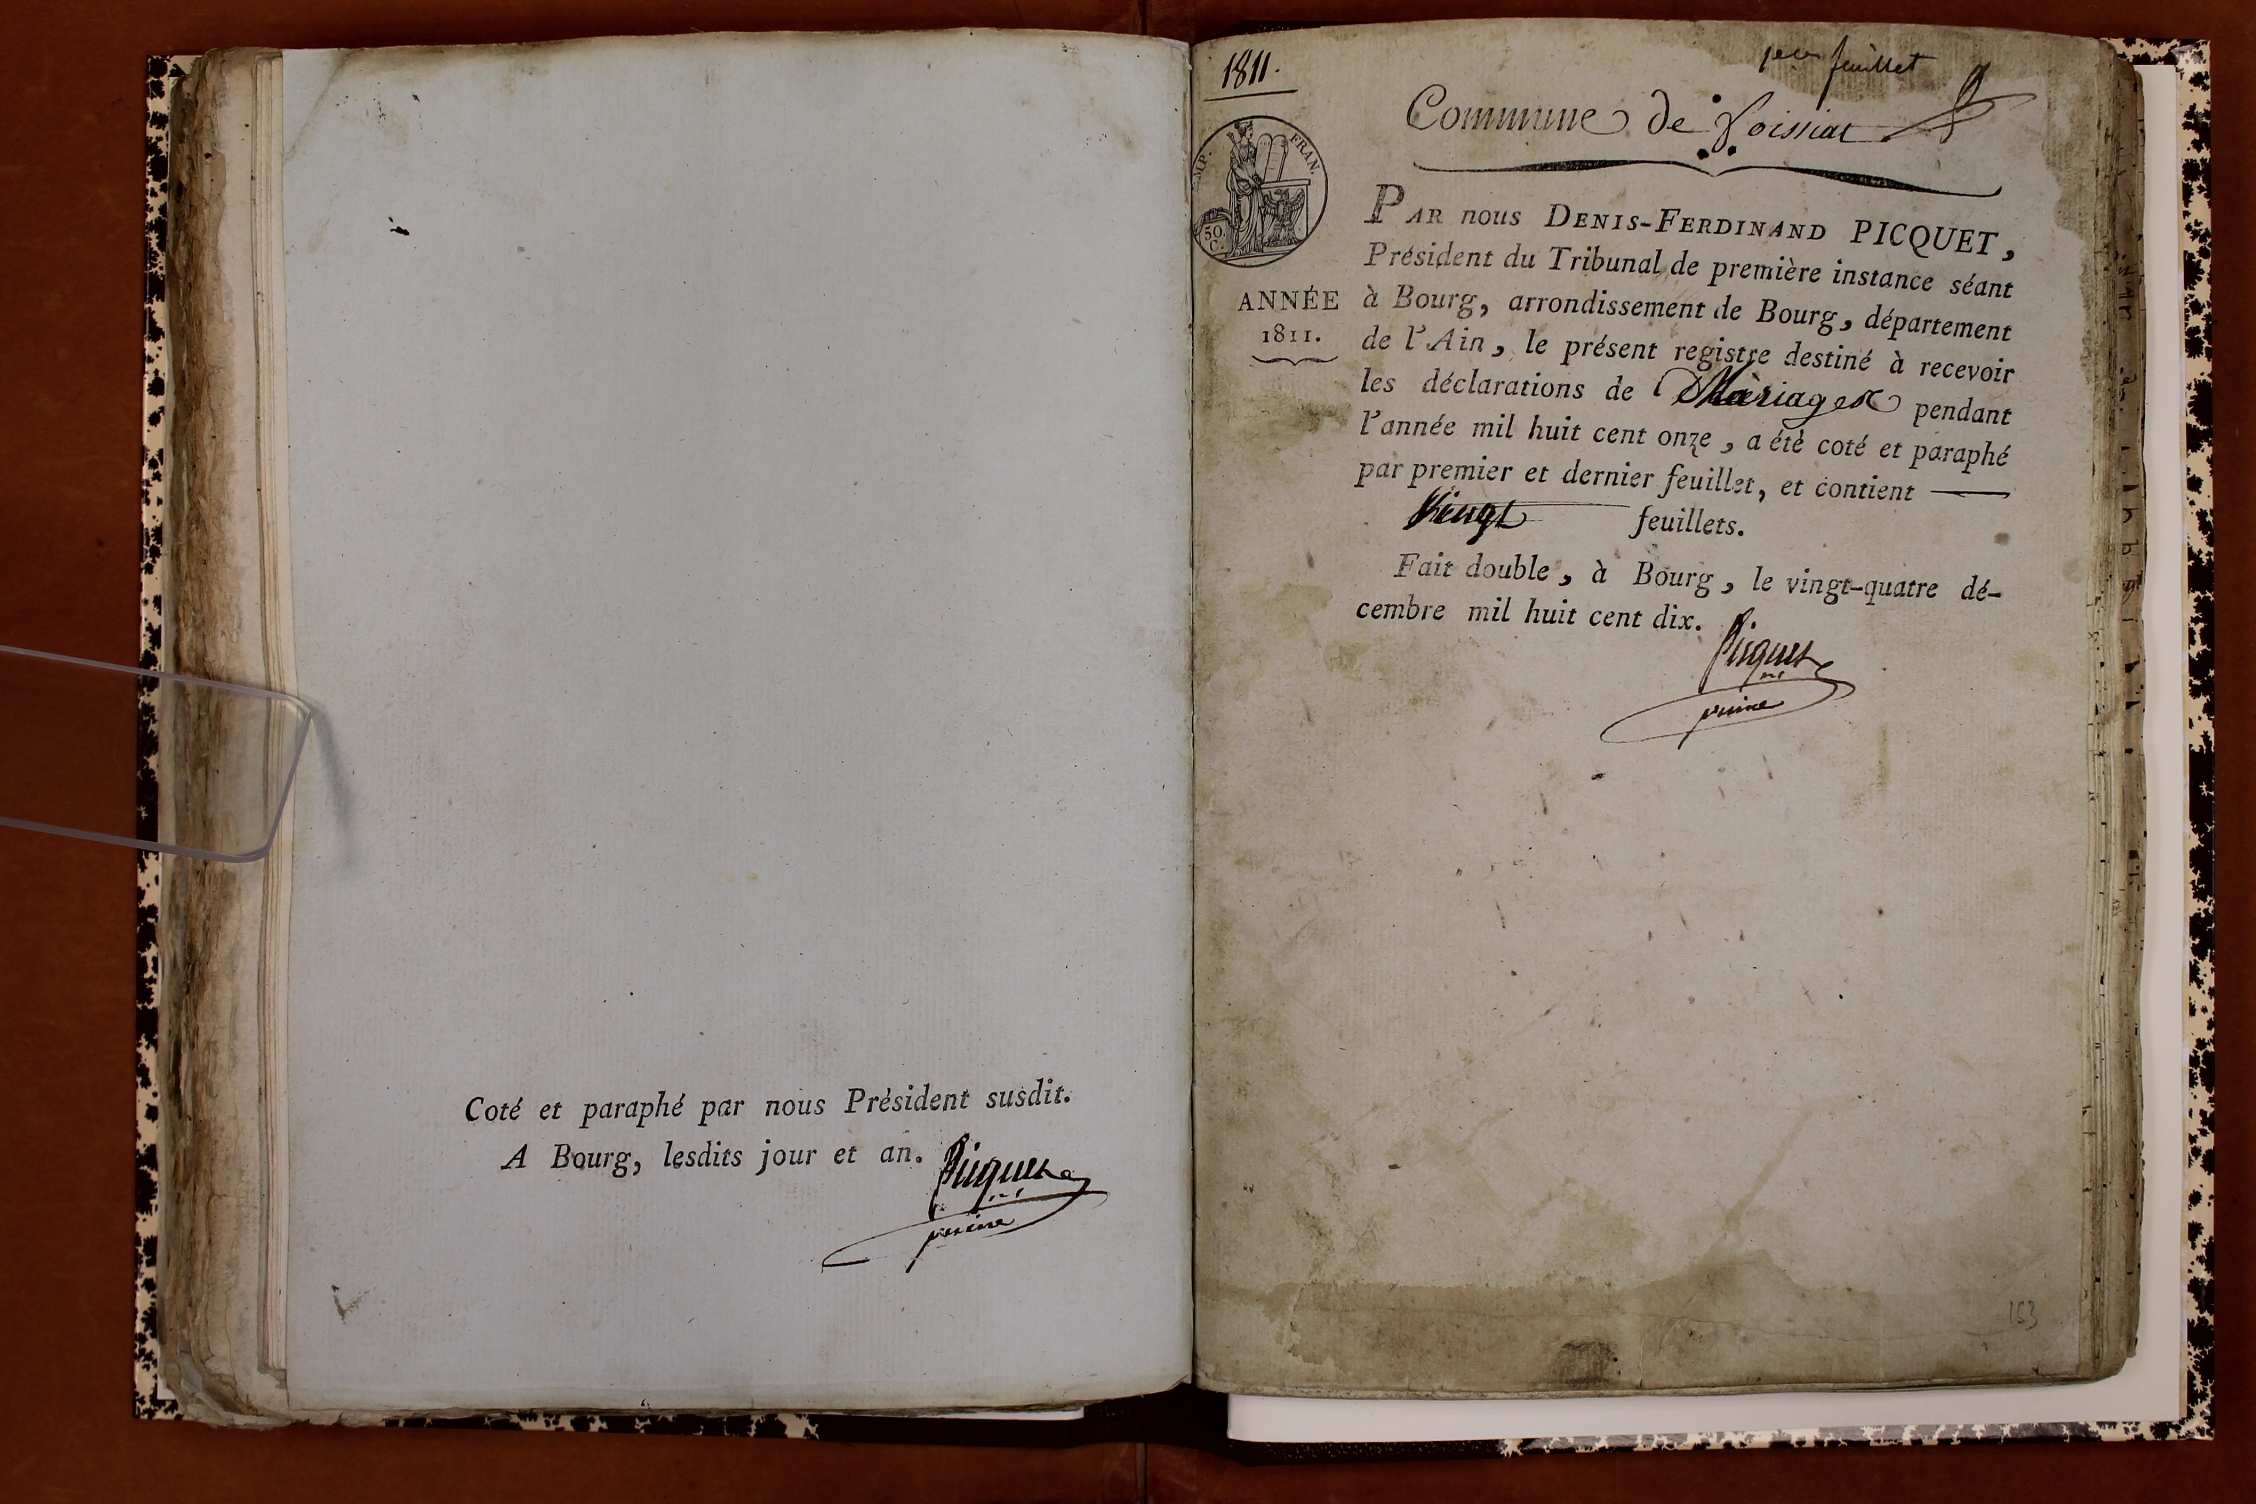 Coté et paraphé par nous Président susdit.
A Bourg, lesdits jour et an.
Picquet
1811.
1er feuillet
Commune de Foissiat
MP. FRAN.
50. C.
ANNÉE
1811.
PAR nous DENIS-FERDINAND PICQUET,
Président du Tribunal de première instance séant
à Bourg, arrondissement de Bourg, département
de l'Ain, le présent registre destiné à recevoir
les déclarations de Mariages pendant
l'année mil huit cent onze, a été coté et paraphé
par premier et dernier feuillet, et contient
Vingt feuillets.
Fait double, à Bourg, le vingt-quatre dé-
cembre mil huit cent dix.
Picquet
153